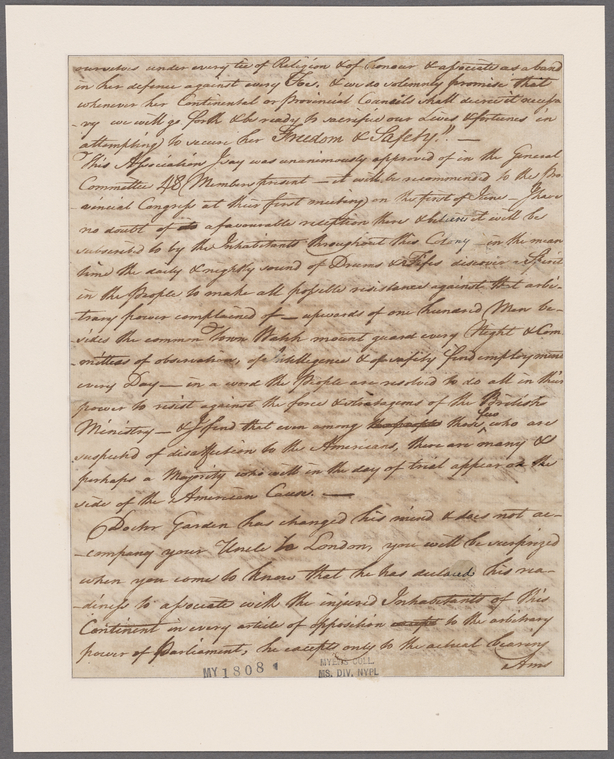 ourselves under every tie of Religion & of honour & associate as a band
in her defence against every Foe. & we do solemnly promise that
whenever her Continental or Provincial Councils shall decree it necessa-
ry we will go forth & be ready to sacrifice our Lives & fortunes in
attempting to secure her Freedom & Safety". —
This Association I say was unanimously approved of in the General
Committee 48 Members present — it will be recommended to the Pro
vincial Congress at their first meeting on the first of June — I have
no doubt of its a favourable reception there & believe it will be
subscribed to by the Inhabitants throughout this Colony — in the mean
time the daily & nightly sound of Drums & Fifes discover a Spirit
in the People to make all possible resistance against that arbi-
trary power complained of — upwards of one hundred Men be-
sides the common Town Watch mount guard every Night & Com
mittees of observation, of Intelligence & of safety find employment
every Day — in a word the People are resolved to do all in their
power to resist against the force & stratagems of the British
Ministry — & I find that even among those few who are
suspected of disaffection to the Americans, there are many &
perhaps a Majority who will in the day of trial appear on the
side of the American Cause. —
Doctor Garden has changed his mind & does not ac-
company your Uncle to London, you will be surprized
when you come to know that he has declared his rea-
diness to associate with the injured Inhabitants of this
Continent in every article of opposition to the arbitrary
power of Parliament, he excepts only to the actual bearing
Arms
MY 1808
MYERS COLL.
MS. DIV. NYPL